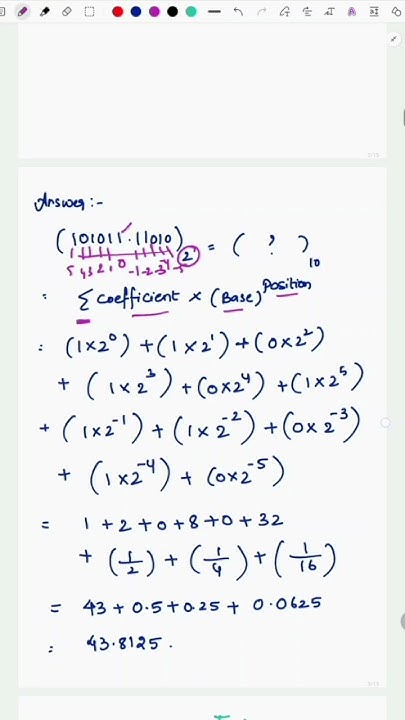 Answer:-
(101011.11010)2 = ( ? )10
5 4 3 2 1 0 -1 -2 -3 -4 -5
= Σ coefficient × (Base)^Position
= (1×2^0) + (1×2^1) + (0×2^2)
+ (1×2^3) + (0×2^4) + (1×2^5)
+ (1×2^-1) + (1×2^-2) + (0×2^-3)
+ (1×2^-4) + (0×2^-5)
= 1 + 2 + 0 + 8 + 0 + 32
+ (1/2) + (1/4) + (1/16)
= 43 + 0.5 + 0.25 + 0.0625
: 43.8125 .